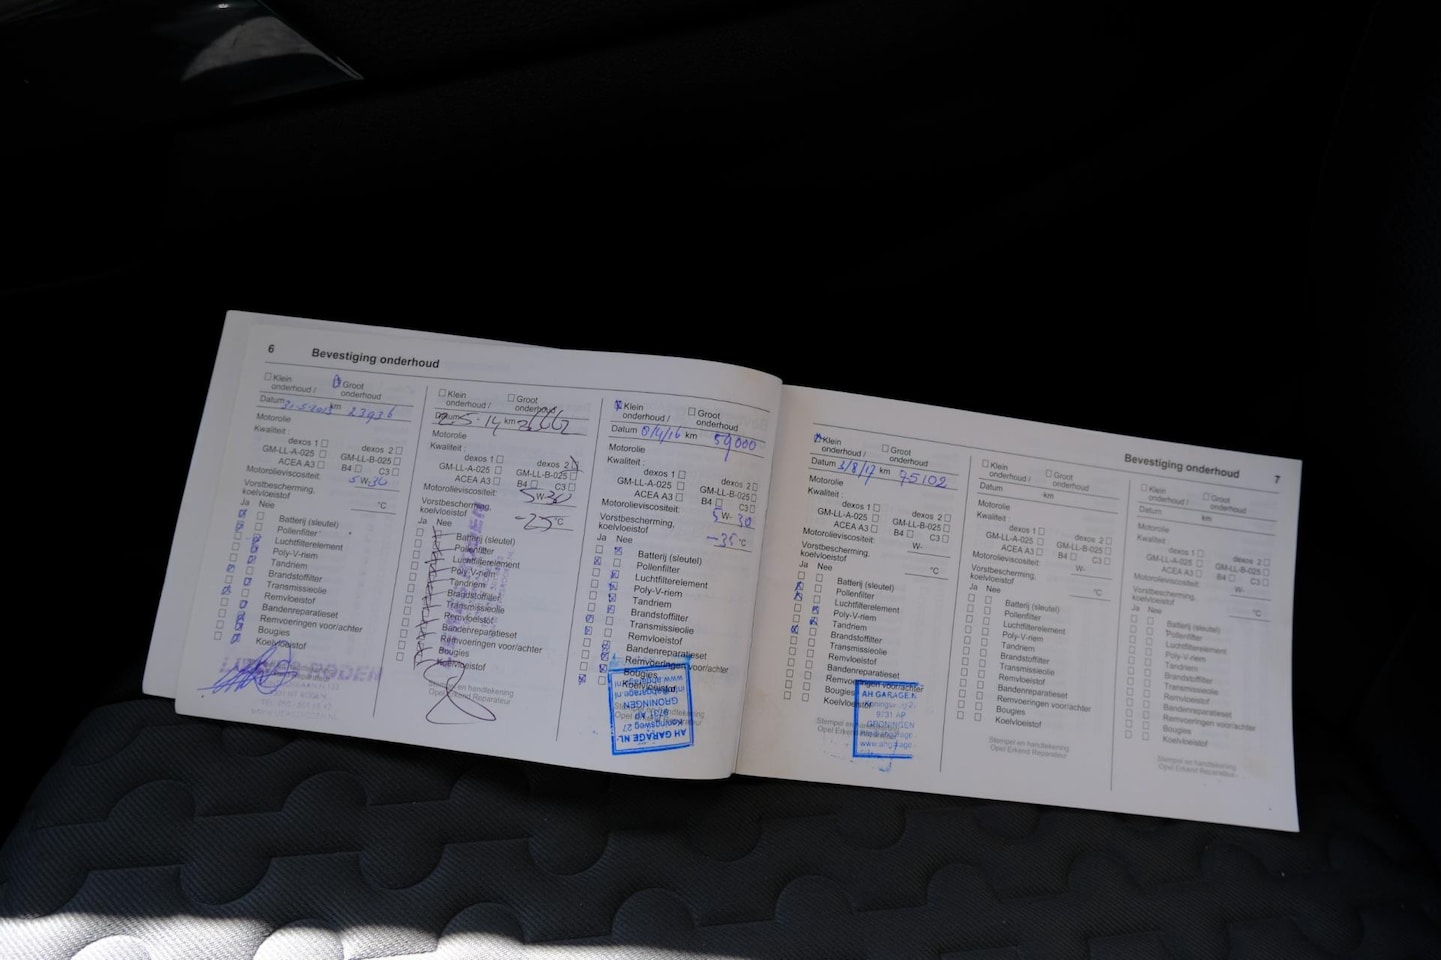 6 Bevestiging onderhoud
Klein onderhoud / Groot onderhoud
Datum 31-5-2013 km 23936
Motorolie
Kwaliteit :
dexos 1 dexos 2
GM-LL-A-025 GM-LL-B-025
ACEA A3 B4 C3
Motorolieviscositeit: 5 W- 30
Vorstbescherming, koelvloeistof °C
Ja Nee
Batterij (sleutel)
Pollenfilter
Luchtfilterelement
Poly-V-riem
Tandriem
Brandstoffilter
Transmissieolie
Remvloeistof
Bandenreparatieset
Remvoeringen voor/achter
Bougies
Koelvloeistof
RODEN
Klein onderhoud / Groot onderhoud
Datum km
Motorolie
Kwaliteit :
dexos 1 dexos 2
GM-LL-A-025 GM-LL-B-025
ACEA A3 B4 C3
Motorolieviscositeit: 5 W- 30
Vorstbescherming, koelvloeistof -25 °C
Ja Nee
Batterij (sleutel)
Pollenfilter
Luchtfilterelement
Poly-V-riem
Tandriem
Brandstoffilter
Transmissieolie
Remvloeistof
Bandenreparatieset
Remvoeringen voor/achter
Bougies
Koelvloeistof
Stempel en handtekening
Opel Erkend Reparateur
Klein onderhoud / Groot onderhoud
Datum 8/4/16 km 59000
Motorolie
Kwaliteit :
dexos 1 dexos 2
GM-LL-A-025 GM-LL-B-025
ACEA A3 B4 C3
Motorolieviscositeit: 5 W- 30
Vorstbescherming, koelvloeistof -35 °C
Ja Nee
Batterij (sleutel)
Pollenfilter
Luchtfilterelement
Poly-V-riem
Tandriem
Brandstoffilter
Transmissieolie
Remvloeistof
Bandenreparatieset
Remvoeringen voor/achter
Bougies
Koelvloeistof
AH GARAGE NL
Koningsweg 27
9731 AP
GRONINGEN
Bevestiging onderhoud 7
Klein onderhoud / Groot onderhoud
Datum 3/8/17 km 75102
Motorolie
Kwaliteit :
dexos 1 dexos 2
GM-LL-A-025 GM-LL-B-025
ACEA A3 B4 C3
Motorolieviscositeit: W-
Vorstbescherming, koelvloeistof °C
Ja Nee
Batterij (sleutel)
Pollenfilter
Luchtfilterelement
Poly-V-riem
Tandriem
Brandstoffilter
Transmissieolie
Remvloeistof
Bandenreparatieset
Remvoeringen voor/achter
Bougies
Koelvloeistof
AH GARAGE N
9731 AP
GRONINGEN
Klein onderhoud / Groot onderhoud
Datum km
Motorolie
Kwaliteit :
dexos 1 dexos 2
GM-LL-A-025 GM-LL-B-025
ACEA A3 B4 C3
Motorolieviscositeit: W-
Vorstbescherming, koelvloeistof °C
Ja Nee
Batterij (sleutel)
Pollenfilter
Luchtfilterelement
Poly-V-riem
Tandriem
Brandstoffilter
Transmissieolie
Remvloeistof
Bandenreparatieset
Remvoeringen voor/achter
Bougies
Koelvloeistof
Stempel en handtekening
Opel Erkend Reparateur
Klein onderhoud / Groot onderhoud
Datum km
Motorolie
Kwaliteit :
dexos 1 dexos 2
GM-LL-A-025 GM-LL-B-025
ACEA A3 B4 C3
Motorolieviscositeit: W-
Vorstbescherming, koelvloeistof °C
Ja Nee
Batterij (sleutel)
Pollenfilter
Luchtfilterelement
Poly-V-riem
Tandriem
Brandstoffilter
Transmissieolie
Remvloeistof
Bandenreparatieset
Remvoeringen voor/achter
Bougies
Koelvloeistof
Stempel en handtekening
Opel Erkend Reparateur